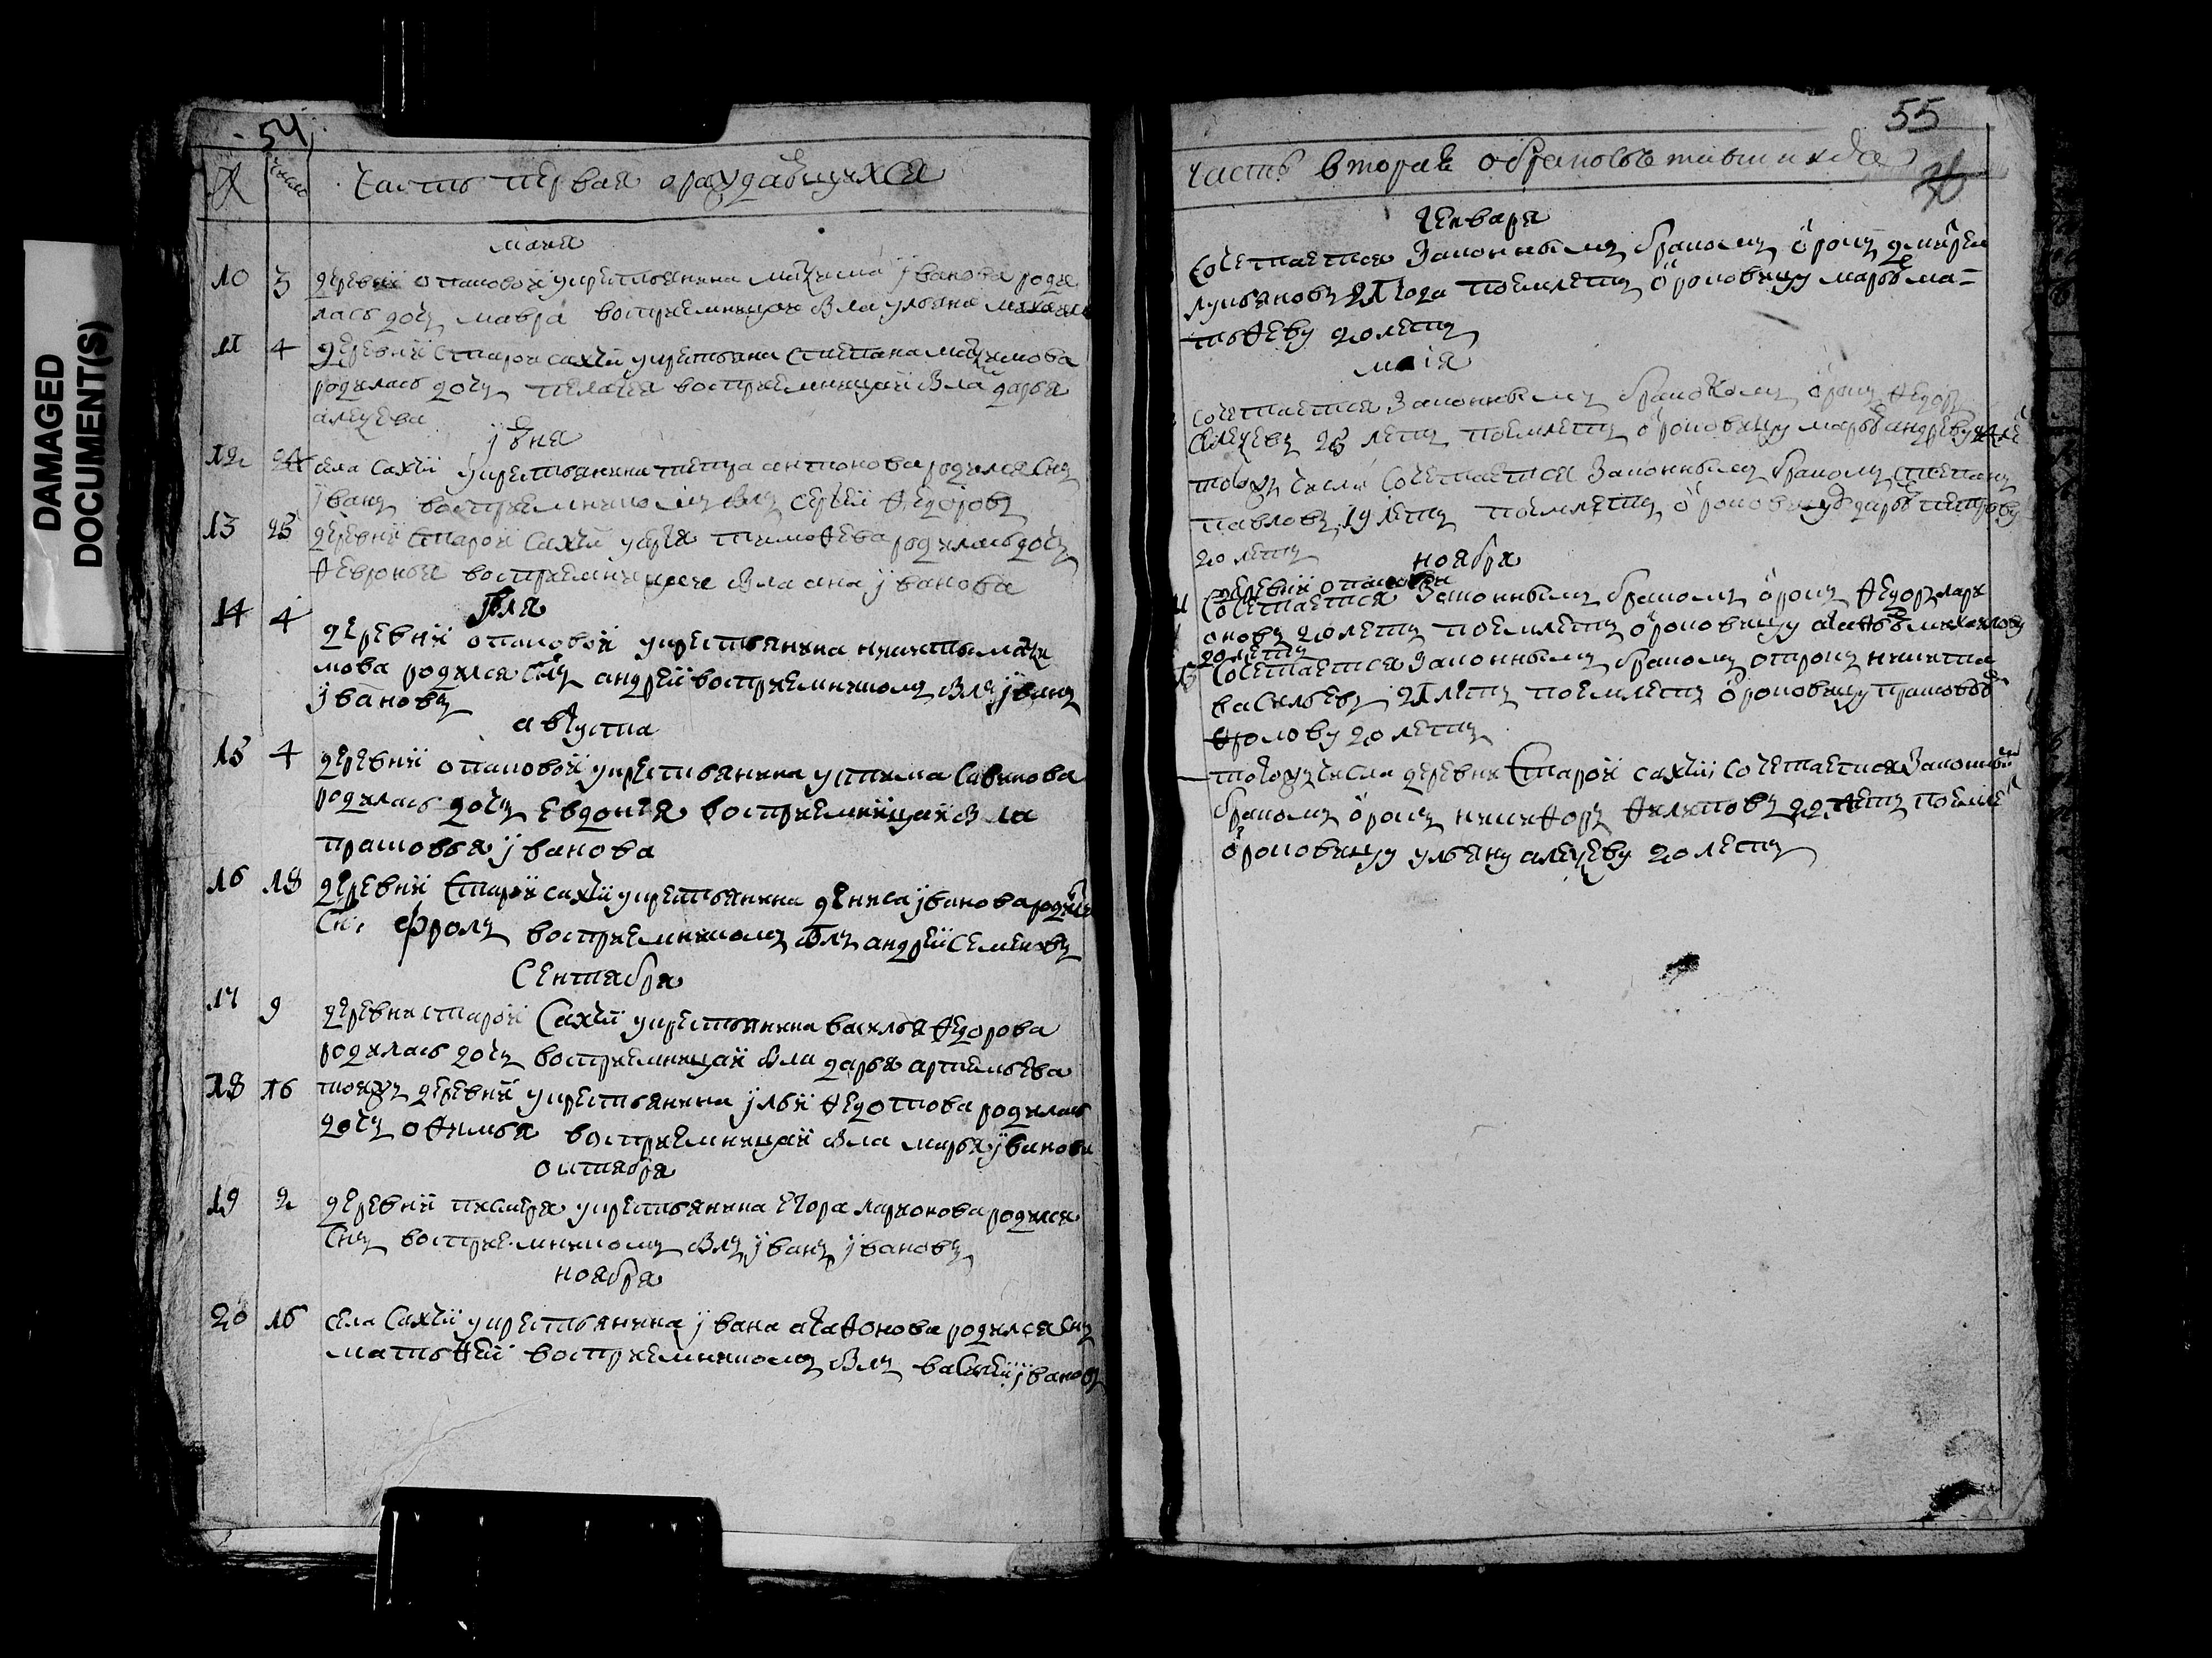 DAMAGED
DOCUMENT(S)
54
№ число Часть первая о раждавшихся
маия
10 3 деревни опаковой у крестьянина маѯима ивановa роди
лась дочъ мавра восприемницаи была ульяна михаила
11 4 деревни старои сахчи у крестьянина степана маѯимова
родилась дочъ пелагея восприемницаи была дарья
алеѯеева
июня
12 24 села сахчи у крестьянина петра антонова родился снъ
иванъ восприемникомъ былъ сергеи ѳедоровъ
13 25 деревни старои сахчи тимоѳеева родилась дочъ
ѳевронья восприемницаи была анна иванова
июля
14 4 деревни опаковой у крестьянина никиты маѯи
мова родился снъ андреи восприемникомъ былъ иванъ
ивановъ
августа
15 4 деревни опаковой у крестьянина устима савинова
родилась дочъ евдокия восприемницаи была
прасковья иванова
16 18 деревни старои сахчи у крестьянина дениса иванова родился
снъ фролъ восприемникомъ былъ андреи семеновъ
сентября
17 9 деревни старои сахчи у крестьянина василья ѳедорова
родилась дочъ восприемницаи была дарья артемьева
18 16 тояжъ деревни у крестьянина ильи ѳедотова родилась
дочъ оѳимья восприемницаи была марья иванова
октября
19 2 деревни у крестьянина егора ларионова родился
снъ восприемникомъ былъ иванъ ивановъ
ноября
20 16 села сахчи у крестьянина ивана агаѳонова родился снъ
матьѳеи восприемникомъ былъ василеи ивановъ
55
часть вторая о бракосочетавшихся
36
генваря
сочетается законнымъ бракомъ отрокъ дмитреи
лукьяновъ 21 года поемлетъ отроковицу марью ма-
тьѳееву 20 летъ
маия
сочетается законнымъ бракомъ отрокъ ѳедоръ
алеѯеевъ летъ поемлетъ отроковицу марью андрееву
тогожъ числа сочетается законнымъ бракомъ степанъ
павловъ 19 летъ поемлетъ отроковицу дарью петрову
20 летъ
ноября
деревни опаковой
сочетается законнымъ бракомъ отрокъ ѳедоръ лари
оновъ 20 летъ поемлетъ отроковицу агаѳью михаилову
20 летъ
сочетается законнымъ бракомъ отрокъ никита
васильевъ 21 летъ поемлетъ отроковицу прасковью
ѳролову 20 летъ
тогожъ числа деревни старои сахчи сочетается законным
бракомъ отрокъ никиѳоръ ѳилиповъ 22 летъ поемле
отроковицу ульяну алеѯееву 20 летъ